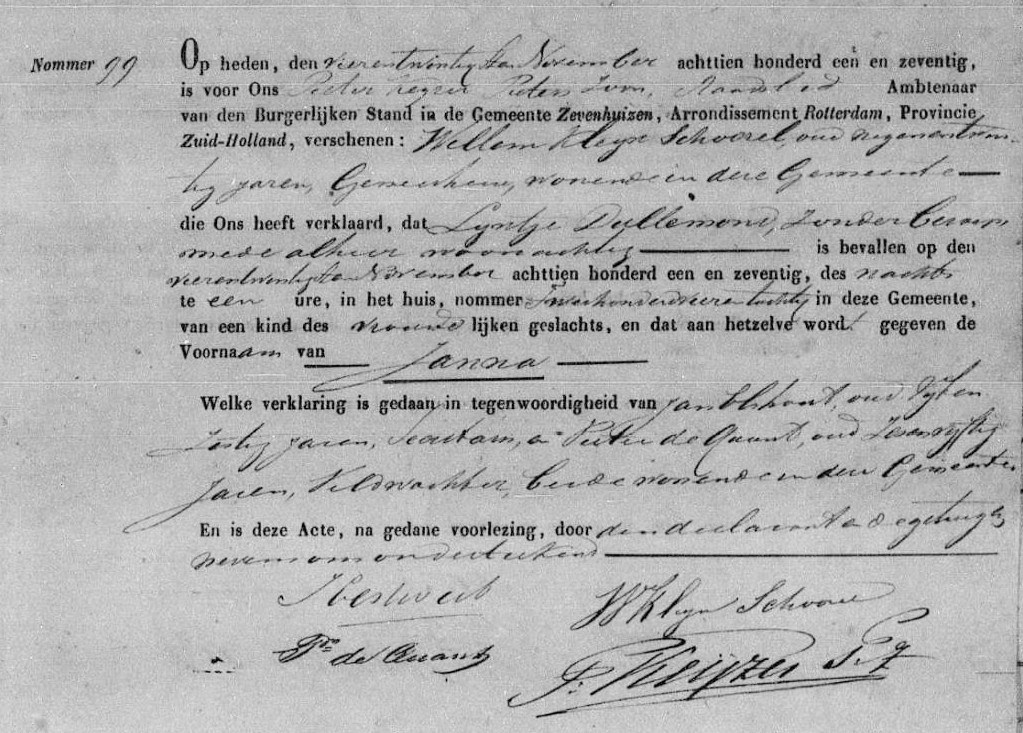 Nommer 99
Op heden, den vierentwintigsten November achttien honderd een en zeventig,
is voor Ons Pieter Keyzer Pieters Zoon, Raadslid Ambtenaar
van den Burgerlijken Stand in de Gemeente Zevenhuizen, Arrondissement Rotterdam, Provincie
Zuid-Holland, verschenen: Willem Kleyn Schoorel, oud negenentwin-
tig jaren, Geneesheer, wonende in deze Gemeente
die Ons heeft verklaard, dat Lyntje Dullemond, zonder beroep
mede alhier woonachtig is bevallen op den
vierentwintigsten November achttien honderd een en zeventig, des nachts
te een ure, in het huis, nommer Tweehonderdvierentachtig in deze Gemeente,
van een kind des vrouwelijken geslachts, en dat aan hetzelve wordt gegeven de
Voornaam van Janna
Welke verklaring is gedaan in tegenwoordigheid van Jan oud vyf en
zestig jaren, en Pieter de Quant, oud zesenvyftig
jaren, Veldwachter, beide wonende in deze Gemeente
En is deze Acte, na gedane voorlezing, door den declarant en de getuigen
nevens ons onderteekend
WKleyn Schoorel
Pr de Quant
P: Keijzer Pz